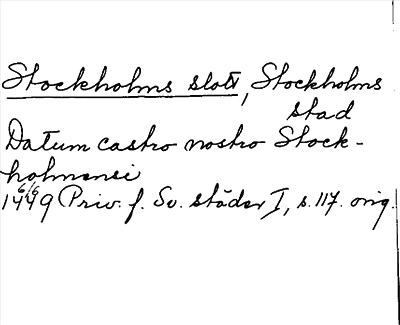 Stockholms slott, Stockholms
stad
Datum castro nostro Stock-
holmensi
1449 6/6 Priv. f. Sv. städer I, s. 117. orig.